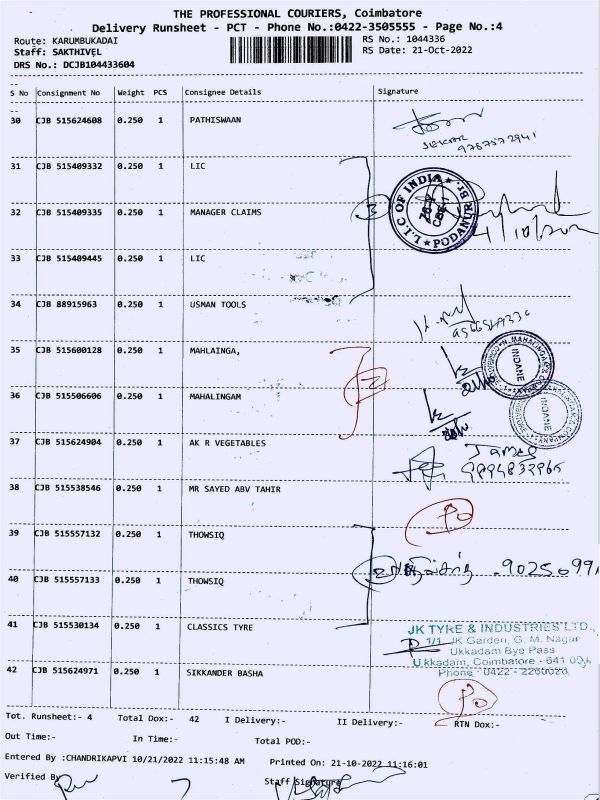 THE PROFESSIONAL COURIERS, Coimbatore
Delivery Runsheet - PCT - Phone No.:0422-3505555 - Page No.:4
Route: KARUMBUKADAI RS No.: 1044336
Staff: SAKTHIVEL RS Date: 21-Oct-2022
DRS No.: DCJB104433604
S No Consignment No Weight PCS Consignee Details Signature
30 CJB 515624608 0.250 1 PATHISWAAN
SEKAR
9787572941
31 CJB 515409332 0.250 1 LIC
L.I.C OF INDIA
PODANUR
32 CJB 515409335 0.250 1 MANAGER CLAIMS 3
33 CJB 515409445 0.250 1 LIC
34 CJB 88915963 0.250 1 USMAN TOOLS
35 CJB 515600128 0.250 1 MAHLAINGA,
INDANE
36 CJB 515506606 0.250 1 MAHALINGAM
INDANE
37 CJB 515624904 0.250 1 AK R VEGETABLES
9894832965
38 CJB 515538546 0.250 1 MR SAYED ABV TAHIR
39 CJB 515557132 0.250 1 THOWSIQ
40 CJB 515557133 0.250 1 THOWSIQ
41 CJB 515530134 0.250 1 CLASSICS TYRE
JK TYRE & INDUSTRIES LTD.,
1/1, JK Garden, G. M. Nagar
Ukkadam Bye Pass
Ukkadam, Coimbatore - 641
Phone - 0422 -
42 CJB 515624971 0.250 1 SIKKANDER BASHA
Tot. Runsheet:- 4 Total Dox:- 42 I Delivery:- II Delivery:- RTN Dox:-
Out Time:- In Time:- Total POD:-
Entered By :CHANDRIKAPVI 10/21/2022 11:15:48 AM Printed On: 21-10-2022 11:16:01
Verified By Staff Signature